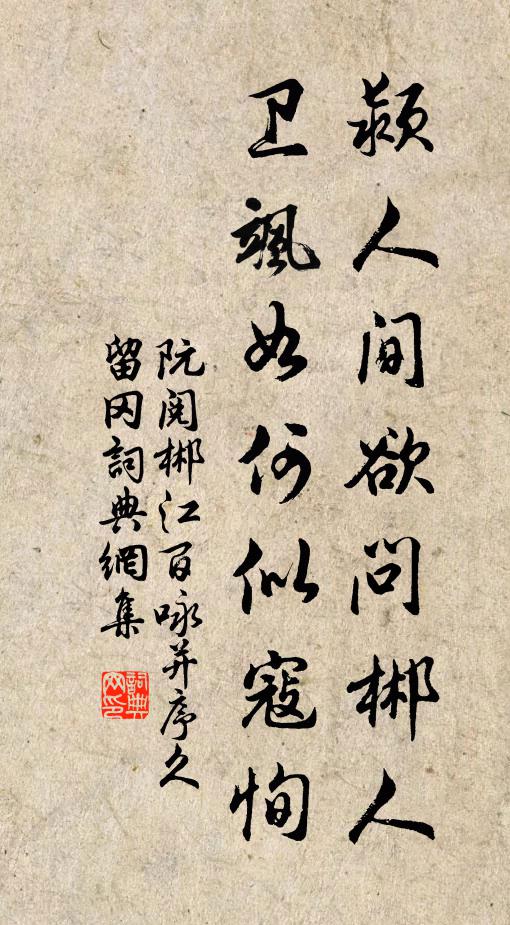 颍人间欲问郴人
卫飒如何似寇恂
阮阅郴江百咏并序久
留冈詞典網集
詞典
网印